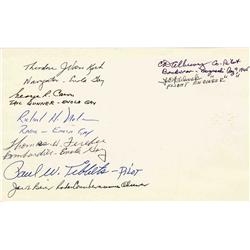 Theodore J. Van Kirk
Navigator - Enola Gay
George R. Caron
TAIL GUNNER - ENOLA GAY
Richard H. Nelson
Radio - Enola Gay
Thomas W. Ferebee
Bombardier - Enola Gay
Paul W. Tibbets - Pilot
Jacob Beser Radar Countermeasures Observer
CD Albury Co-Pilot
Bockscar - Nagasaki Aug 9, 1945
FLIGHT ENGINEER